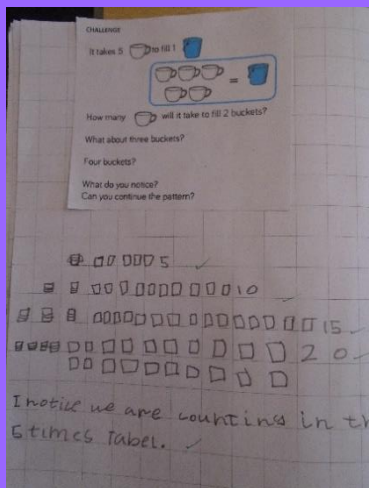 CHALLENGE
It takes 5 to fill 1
=
How many will it take to fill 2 buckets?
What about three buckets?
Four buckets?
What do you notice?
Can you continue the pattern?
5
10
15
20
I notice we are counting in th
5 times Tabel.